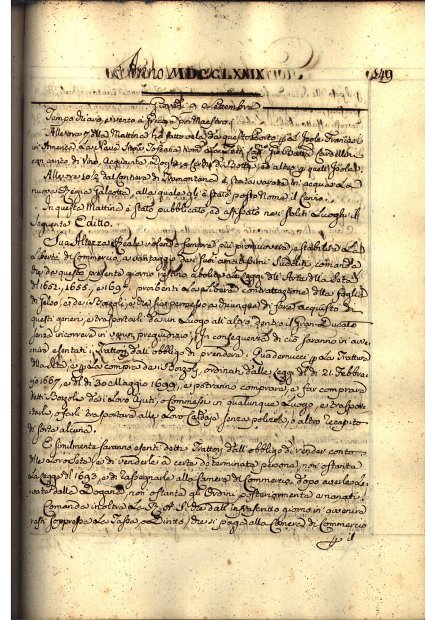 Anno MDCCLXXIX 549
Giovedì 9 Settembre
Tempo chiaro, e vento a
Alle ore 7 della Mattina hà fatto vela da questo Porto per Isole Francesi
in America La Nave Toscana Cap. Gio. Batta
con carico di Vino, Acquavite ed altro per quell'Isole
Alle ore 10½ dal Cantiere di è stata varata in acqua La
nuova Galeotta, alla quale gl'è stato posto Nome il
In questa Mattina è stato pubblicato, ed affissato nei soliti Luoghi il
seguente Editto.
Sua Altezza Reale volendo sempre più promuovere, e stabilire La
Libertà di Commercio, a vantaggio dei suoi amatissimi Sudditi, comanda
che da questo presente giorno restino abolite Le Leggi dell'Arte della Seta
del 1652, 1655, e 169 proibenti La libera contrattazione della foglia
di Gelso, e dei Bozzoli, e che sia permesso a chiunque di fare acquisto di
questi generi, e trasportarli da un Luogo all'altro dentro il Gran-Ducato
senza incorrere in verun pregiudizio; In conseguenza di ciò saranno in avve-
nire esentati i Trattori dall'obbligo di prendere per La Trattura
della Seta, e per La compra dei Bozzoli, ordinati dalle Leggi del dì 21. Febbra-
io 1667, e del dì 30 Maggio 1699, e potranno comprare, e far comprare
detti Bozzoli dai Loro Ajuti, o Commessi in qualunque Luogo, e traspor-
tarli, o farli trasportare alle Loro Caldaje senza polizze, o altro recapito
di sorte alcuna.
E similmente saranno esenti detti Trattori dall'obbligo di render conto
delle Loro Sete, e di venderle a certe determinate persone, non ostante
La Legge del 1693, e di rassegnarle alla Camera di Commercio, dopo averle Le-
vate dalla Dogana non ostanti gli Ordini posteriormente emanati.
Comanda inoltre La R. A. S. che dall'infrascritto giorno in avvenire
resti soppressa La Tassa, o Diritto, che si paga alla Camera di Commercio